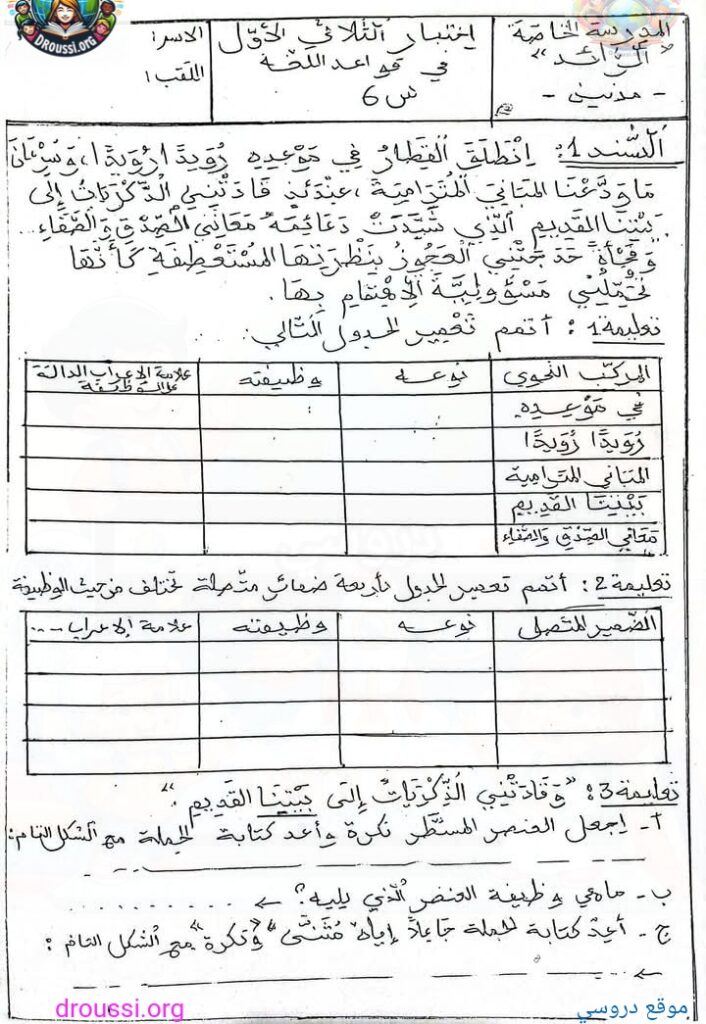 DROUSSI.org
المدرسة الخاصة
"الرائد"
- مدنين -
إختبار الثلاثي الأوّل
في قواعد اللغة
س 6
الاسم:
اللقب:
السند 1: اِنْطَلَقَ القِطَارُ فِي مَوْعِدِهِ رُوَيْدًا رُوَيْدًا، وَسُرْعَانَ
مَا وَدَّعْنَا المَبَانِيَ المُتَرَامِيَةَ، عِنْدَئِذٍ قَادَتْنِي الذِّكْرَيَاتُ إِلَى
بَيْتِنَا القَدِيمِ الَّذِي شَيَّدَتْ دَعَائِمَهُ مَعَانِي الصِّدْقِ وَالصَّفَاءِ...
وَفَجْأَةً حَدَجَتْنِي العَجُوزُ بِنَظْرَتِهَا المُسْتَعْطِفَةِ كَأَنَّهَا
تُحَمِّلُنِي مَسْؤُولِيَّةَ الاِهْتِمَامِ بِهَا.
تعليمة 1: أتمم تعمير الجدول التّالي:
المركّب النحوي	نوعه	وظيفته	علامة الإعراب الدالة على الوظيفة
في مَوْعِدِهِ
رُوَيْدًا رُوَيْدًا
المَبَانِي المُتَرَامِيَة
بَيْتِنَا القَدِيمِ
مَعَانِي الصِّدْقِ وَالصَّفَاءِ
تعليمة 2: أتمم تعمير الجدول بأربعة ضمائر متّصلة تختلف من حيث الوظيفة
الضّمير المتّصل	نوعه	وظيفته	علامة الإعراب...
تعليمة 3: "وَقَادَتْنِي الذِّكْرَيَاتُ إِلَى بَيْتِنَا القَدِيمِ."
أ- اِجعل العنصر المسطّر نكرة وأعد كتابة الجملة مع الشكل التام:
ب- ماهي وظيفة العنصر الّذي يليه؟ ← ..........
ج- أعِدْ كتابة الجملة جَاعِلاً إيّاهُ "مُثَنَّى" وَ"نكرة" مع الشكل التام:
←
droussi.org
موقع دروسي